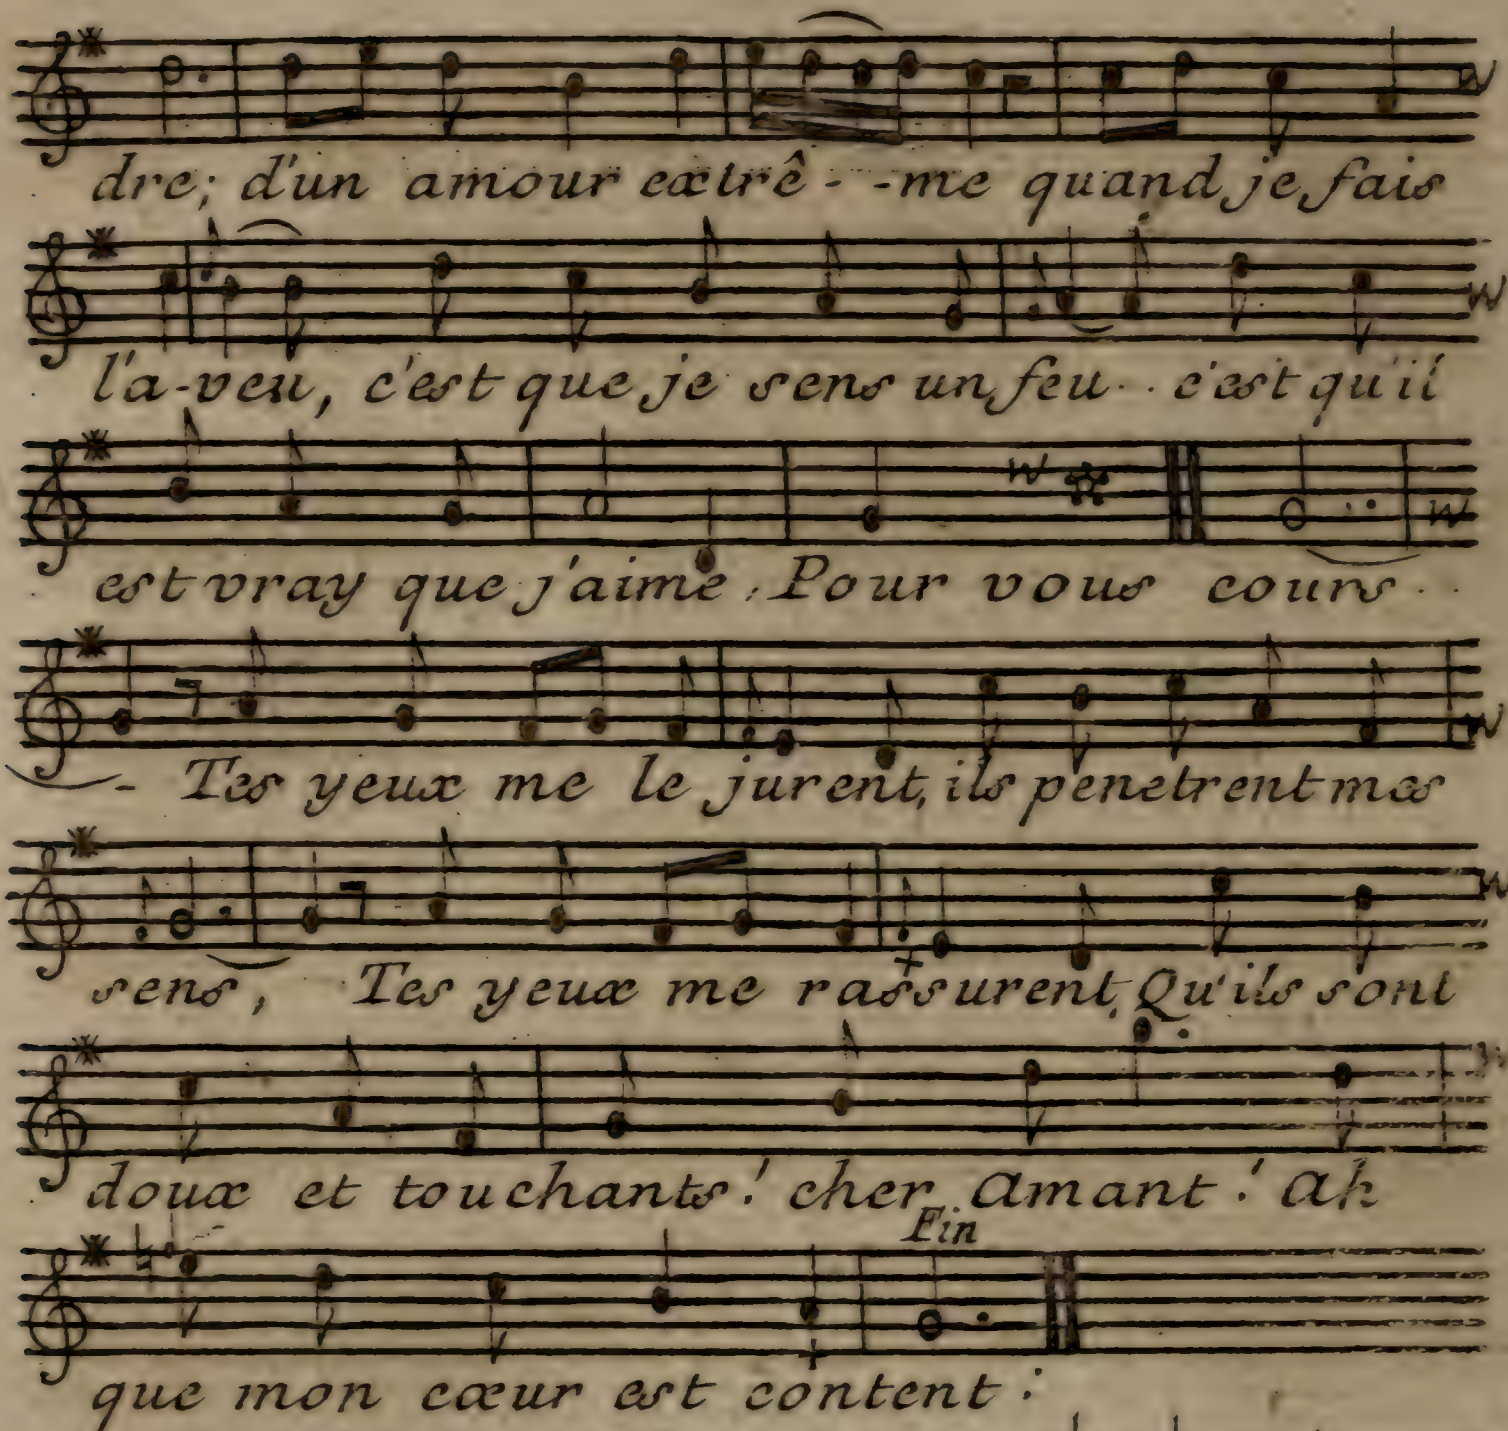 dre; d'un amour extrê--me quand je fais
l'a-veu, c'est que je sens un feu.. c'est qu'il
est vray que j'aime, Pour vous cours..
- Tes yeux me le jurent, ils penetrent mes
sens, Tes yeux me rassurent, Qu'ils sont
doux et touchants! cher Amant! Ah
Fin
que mon cœur est content: